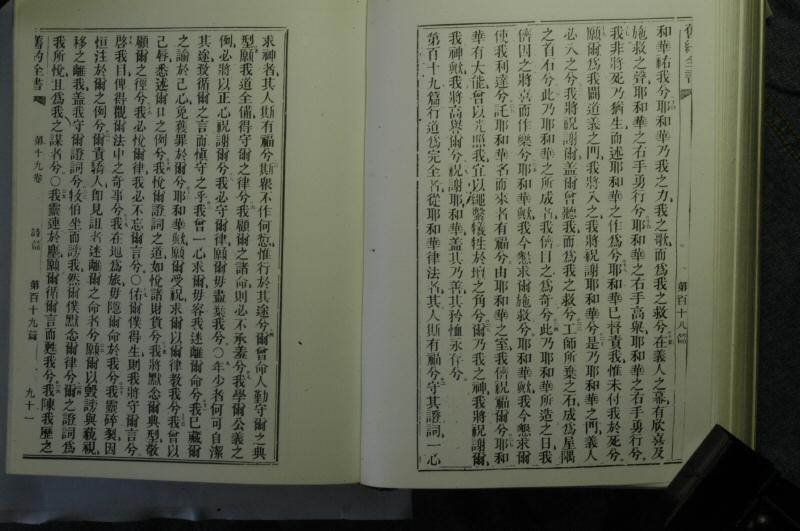 舊約全書
第百十八篇
和華祐我兮耶和華乃我之力我之歌而爲我之救兮在義人之幕有欣喜及
施救之聲耶和華之右手勇行兮耶和華之右手高舉耶和華之右手勇行兮
我非將死乃猶生而述耶和華之作爲兮耶和華已督責我惟未付我於死兮
願爾爲我闢道義之門我將入之我將祝謝耶和華兮是乃耶和華之門義人
必入之兮我將祝謝爾蓋爾曾聽我而爲我之救兮工師所棄之石成爲屋隅
之首石兮此乃耶和華之所成者我儕目之爲奇兮此乃耶和華所造之日我
儕因之將喜而作樂兮耶和華歟我今懇求爾施救兮耶和華歟我今懇求爾
使我利達兮託耶和華名而來者有福兮由耶和華之室我儕祝福爾兮耶和
華有大能曾以光照我宜以繩繫犧牲於壇之角兮爾乃我之神我將祝謝爾
我神歟我將高舉爾兮祝謝耶和華蓋其乃善其矜恤永存兮
第百十九篇行道爲完全者從耶和華律法者其人斯有福兮守其證詞一心
求神者其人斯有福兮斯衆不作何愆惟行於其途兮爾曾命人勤守爾之典
型願我道全備得守爾之律兮我顧爾之諸命則必不承羞兮我學爾公義之
例必將以正心祝謝爾兮我必守爾律願爾毋盡棄我兮〇年少者何可自潔
其途致循爾之言而愼守之乎我曾一心求爾毋容我迷離爾命兮我已藏爾
之諭於己心免獲罪於爾兮耶和華歟願爾受祝求爾以爾律敎我兮我曾以
己脣悉述爾口之例兮我悅爾證詞之道如悅諸財貨兮我將默念爾典型敬
顧爾之徑兮我必悅爾律我必不忘爾言兮〇佑爾僕得生則我將守爾言兮
啓我目俾得觀爾法中之奇事兮我在地爲旅毋隱爾命於我兮我靈碎裂因
恒注於爾之例兮爾責驕人卽見詛者迷離爾之命者兮願爾以毀謗與藐視
移之離我蓋我守爾證詞兮牧伯坐而謗我然爾僕默念爾律兮爾之證詞爲
我所悅且爲我之謀者兮〇我靈連於塵願爾循爾言而甦我兮我陳我歷之
舊約全書
第十九卷
詩篇
第百十九篇
九十一